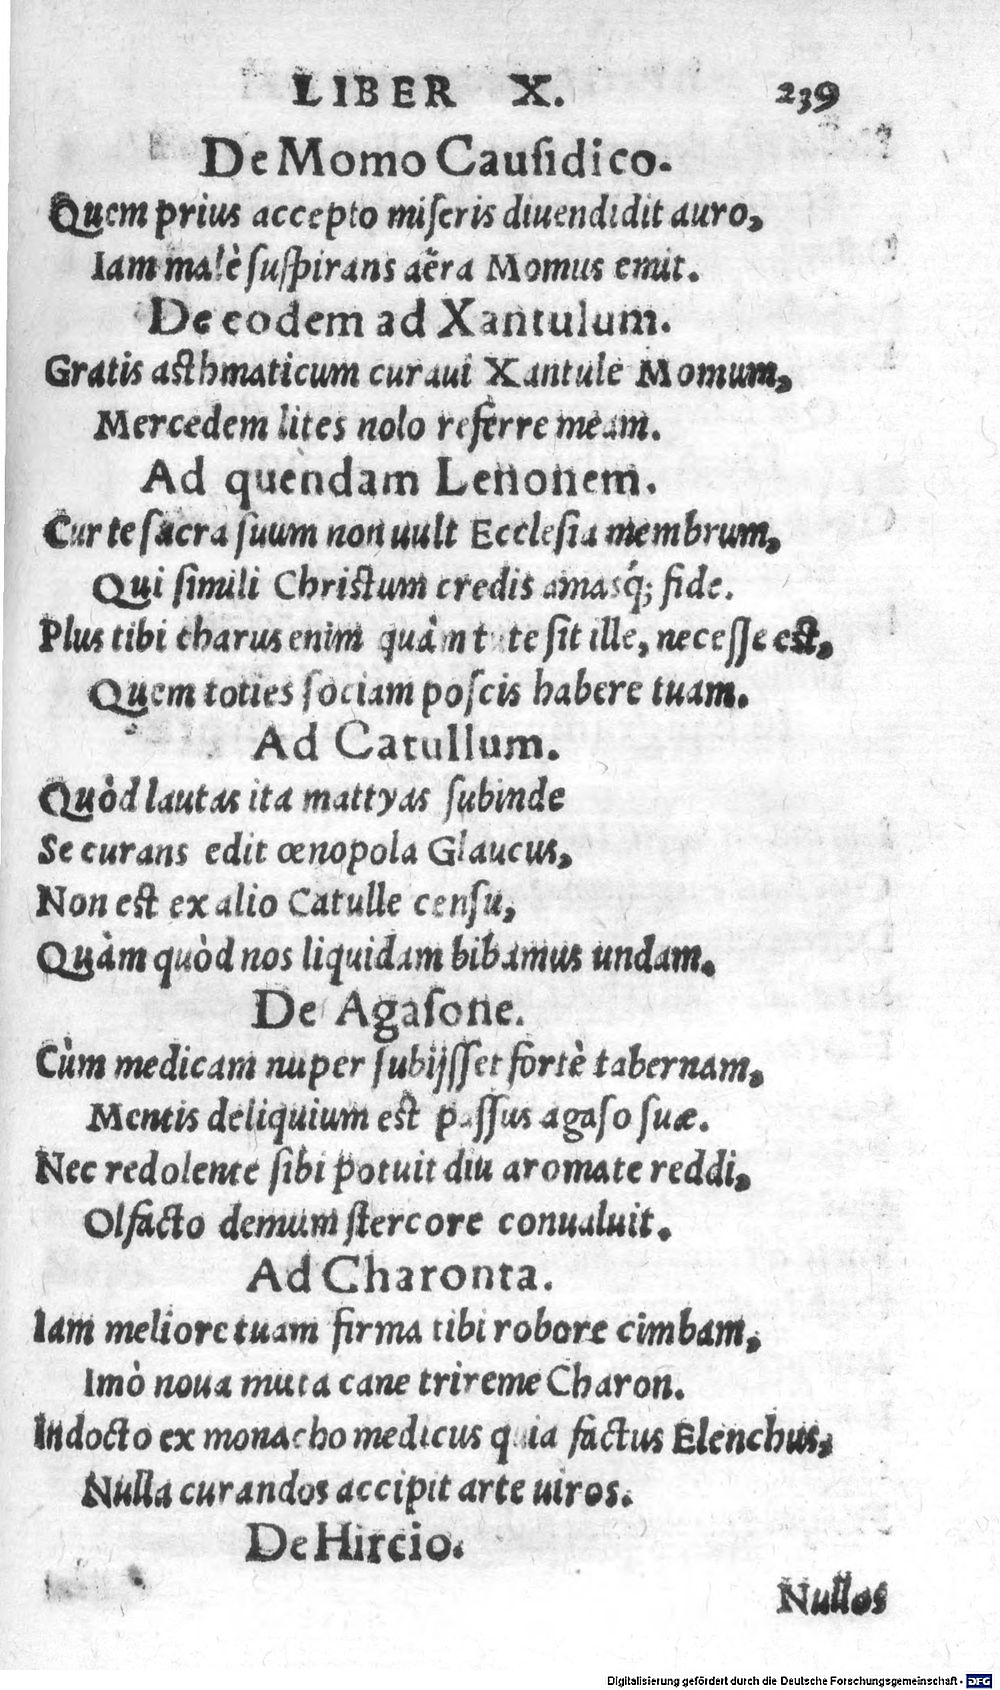 LIBER X. 239
De Momo Causidico.
Quem prius accepto miseris diuendidit auro,
Iam malè suspirans aëra Momus emit.
De eodem ad Xantulum.
Gratis asthmaticum curaui Xantule Momum,
Mercedem lites nolo referre meam.
Ad quendam Lenonem.
Cur te sacra suum non uult Ecclesia membrum,
Qui simili Christum credis amasq́; fide.
Plus tibi charus enim quàm tute sit ille, necesse est,
Quem toties sociam poscis habere tuam.
Ad Catullum.
Quòd lautas ita mattyas subinde
Se curans edit œnopola Glaucus,
Non est ex alio Catulle censu,
Quàm quòd nos liquidam bibamus undam.
De Agasone.
Cùm medicam nuper subijsset fortè tabernam,
Mentis deliquium est passus agaso suæ.
Nec redolente sibi potuit diu aromate reddi,
Olfacto demum stercore conualuit.
Ad Charonta.
Iam meliore tuam firma tibi robore cimbam,
Imò noua muta cane trireme Charon.
Indocto ex monacho medicus quia factus Elenchus,
Nulla curandos accipit arte uiros.
De Hircio.
Nullos
Digitalisierung gefördert durch die Deutsche Forschungsgemeinschaft - DFG